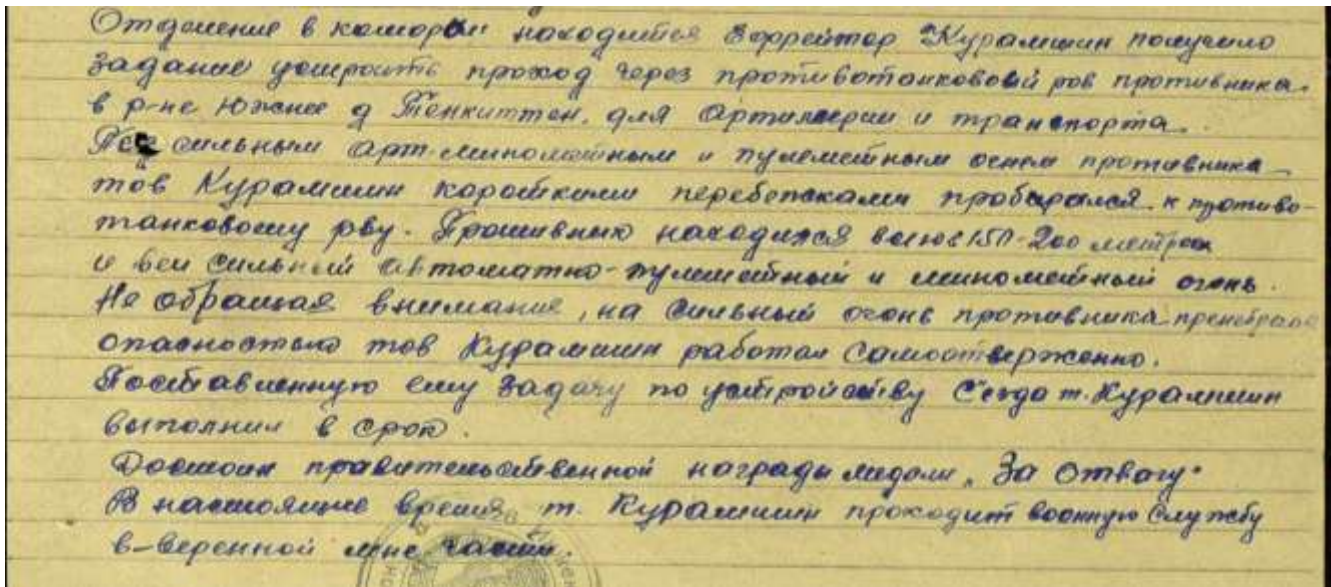 Отделение в котором находится Ефрейтор Курамшин получило
задание устроить проход через противотанковый ров противника.
в р-не Южнее д Тенкиттен, для Артиллерии и транспорта.
Под сильным арт-минометным и пулеметным огнем противника
тов Курамшин короткими перебежками пробирался к противо-
танковому рву. Противник находился всего 150-200 метрах
и вел сильный автоматно-пулеметный и минометный огонь.
Не обращая внимания, на сильный огонь противника пренебрегая
опасностью тов Курамшин работал самоотверженно.
Поставленную ему задачу по устройству С'езда т. Курамшин
выполнил в срок.
Достоин правительственной награды медали „За Отвагу"
В настоящие время т. Курамшин проходит военную службу
в-веренной мне части.